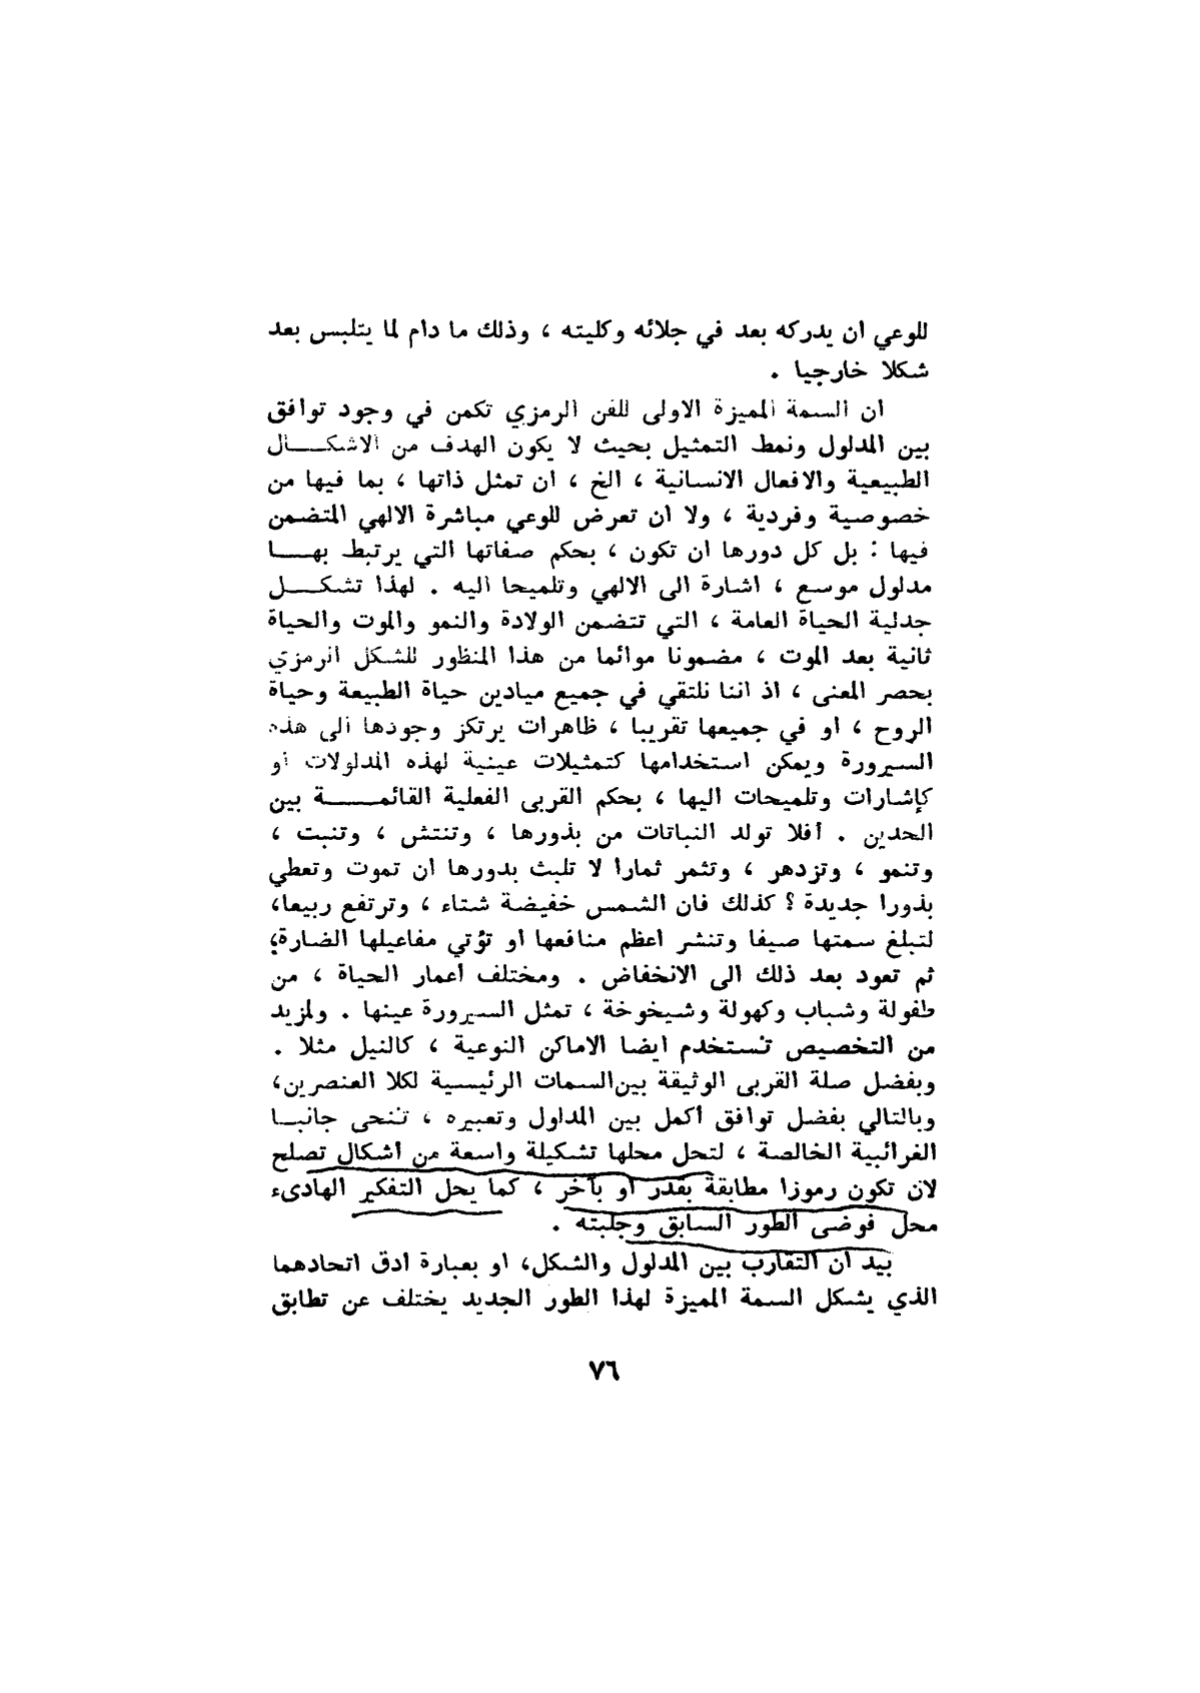 للوعي ان يدركه بعد في جلائه وكليته ، وذلك ما دام لما يتلبس بعد
شكلا خارجيا .
ان السمة المميزة الاولى للفن الرمزي تكمن في وجود توافق
بين المدلول ونمط التمثيل بحيث لا يكون الهدف من الاشكـــال
الطبيعية والافعال الانسانية ، الخ ، ان تمثل ذاتها ، بما فيها من
خصوصية وفردية ، ولا ان تعرض للوعي مباشرة الالهي المتضمن
فيها : بل كل دورها ان تكون ، بحكم صفاتها التي يرتبط بهـــا
مدلول موسع ، اشارة الى الالهي وتلميحا اليه . لهذا تشكـــل
جدلية الحياة العامة ، التي تتضمن الولادة والنمو والموت والحياة
ثانية بعد الموت ، مضمونا موائما من هذا المنظور للشكل الرمزي
بحصر المعنى ، اذ اننا نلتقي في جميع ميادين حياة الطبيعة وحياة
الروح ، او في جميعها تقريبا ، ظاهرات يرتكز وجودها الى هذه
السيرورة ويمكن استخدامها كتمثيلات عينية لهذه المدلولات او
كإشارات وتلميحات اليها ، بحكم القربى الفعلية القائمـــــة بين
الحدين . أفلا تولد النباتات من بذورها ، وتنتش ، وتنبت ،
وتنمو ، وتزدهر ، وتثمر ثمارا لا تلبث بدورها ان تموت وتعطي
بذورا جديدة ؟ كذلك فان الشمس خفيضة شتاء ، وترتفع ربيعا،
لتبلغ سمتها صيفا وتنشر اعظم منافعها او تؤتي مفاعيلها الضارة؛
ثم تعود بعد ذلك الى الانخفاض . ومختلف أعمار الحياة ، من
طفولة وشباب وكهولة وشيخوخة ، تمثل السيرورة عينها . ولمزيد
من التخصيص تستخدم ايضا الاماكن النوعية ، كالنيل مثلا .
وبفضل صلة القربى الوثيقة بين السمات الرئيسية لكلا العنصرين،
وبالتالي بفضل توافق أكمل بين المدلول وتعبيره ، تنحى جانبـا
الغرائبية الخالصة ، لتحل محلها تشكيلة واسعة من أشكال تصلح
لان تكون رموزا مطابقة بقدر أو بآخر ، كما يحل التفكير الهادىء
محل فوضى الطور السابق وجلبته .
بيد ان التقارب بين المدلول والشكل، او بعبارة ادق اتحادهما
الذي يشكل السمة المميزة لهذا الطور الجديد يختلف عن تطابق
٧٦